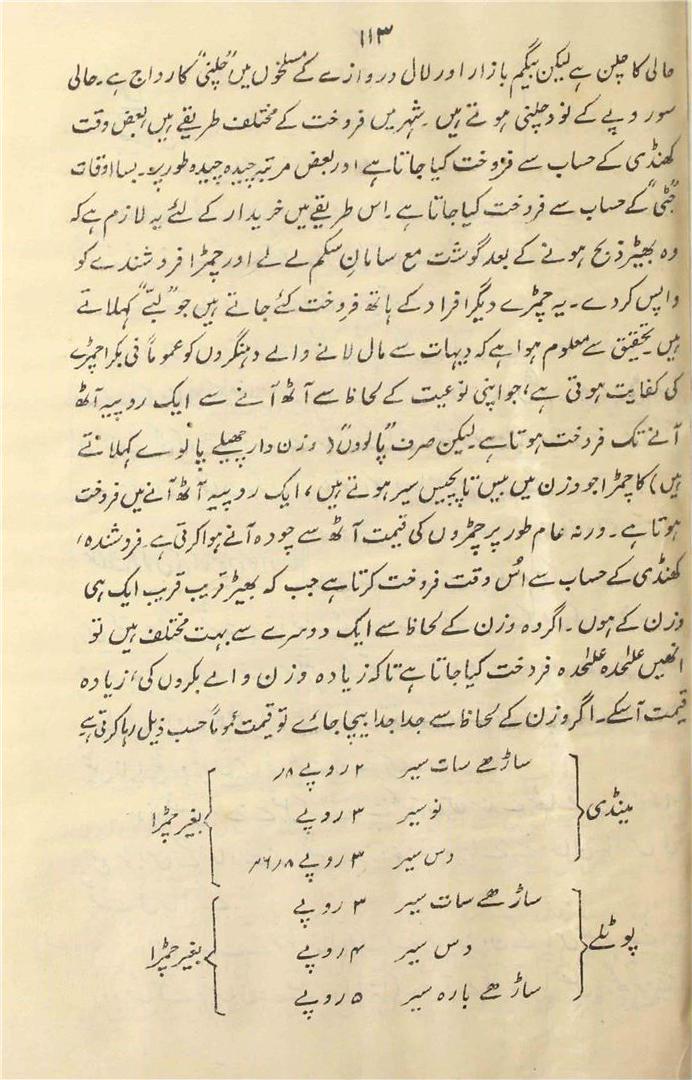 ۱۱۳
حالی کا چلن ہے لیکن بیگم بازار اور لال دروازے کے مسلخوں میں "چلنی" کا رواج ہے۔ حالی
سو روپے کے نود چلنی ہوتے ہیں۔ شہر میں فروخت کے مختلف طریقے ہیں، بعض وقت
کھنڈی کے حساب سے فروخت کیا جاتا ہے اور بعض مرتبہ چیدہ چیدہ طور پر۔ بسا اوقات
"جٹی" کے حساب سے فروخت کیا جاتا ہے۔ اس طریقے میں خریدار کے لئے یہ لازم ہے کہ
وہ بھیڑ ذبح ہونے کے بعد گوشت مع سامانِ سکم لے لے اور چمڑا فروشندے کو
واپس کر دے۔ یہ چمڑے دیگر افراد کے ہاتھ فروخت کئے جاتے ہیں جو "لبّے" کہلاتے
ہیں۔ تحقیق سے معلوم ہوا ہے کہ دیہات سے مال لانے والے دہنگروں کو عموماً فی بکرا چمڑے
کی کفایت ہوتی ہے، جو اپنی نوعیت کے لحاظ سے آٹھ آنے سے ایک روپیہ آٹھ
آنے تک فروخت ہوتا ہے۔ لیکن صرف "پالووں" (وزن دار چھیلے پالوے کہلاتے
ہیں) کا چمڑا جو وزن میں بیس تا پچیس سیر ہوتے ہیں، ایک روپیہ آٹھ آنے میں فروخت
ہوتا ہے۔ ورنہ عام طور پر چمڑوں کی قیمت آٹھ سے چودہ آنے ہوا کرتی ہے۔ فروشندہ،
کھنڈی کے حساب سے اُس وقت فروخت کرتا ہے جب کہ بھیڑ قریب قریب ایک ہی
وزن کے ہوں۔ اگر وہ وزن کے لحاظ سے ایک دوسرے سے بہت مختلف ہیں تو
انھیں علیٰحدہ علیٰحدہ فروخت کیا جاتا ہے تاکہ زیادہ وزن والے بکروں کی، زیادہ
قیمت آسکے۔ اگر وزن کے لحاظ سے جدا جدا بیچا جائے تو قیمت عموماً حسب ذیل رہا کرتی ہے
مینڈی ساڑھے سات سیر ۲ روپے ۸ر
نو سیر ۳ روپے بغیر چمڑا
دس سیر ۳ روپے
پوٹلے ساڑھے سات سیر ۳ روپے
دس سیر ۴ روپے بغیر چمڑا
ساڑھے بارہ سیر ۵ روپے